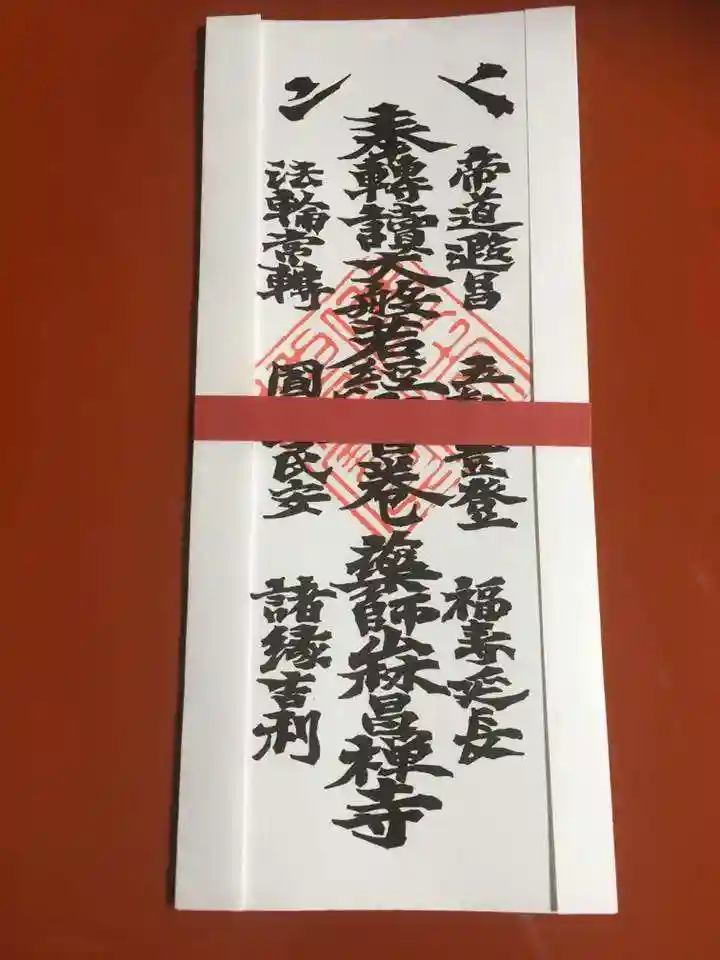 帝道遐昌 五登 福寿延長
奉轉讀大般若經巻 藥師山昌禅寺
法輪常轉 民安 諸縁吉利